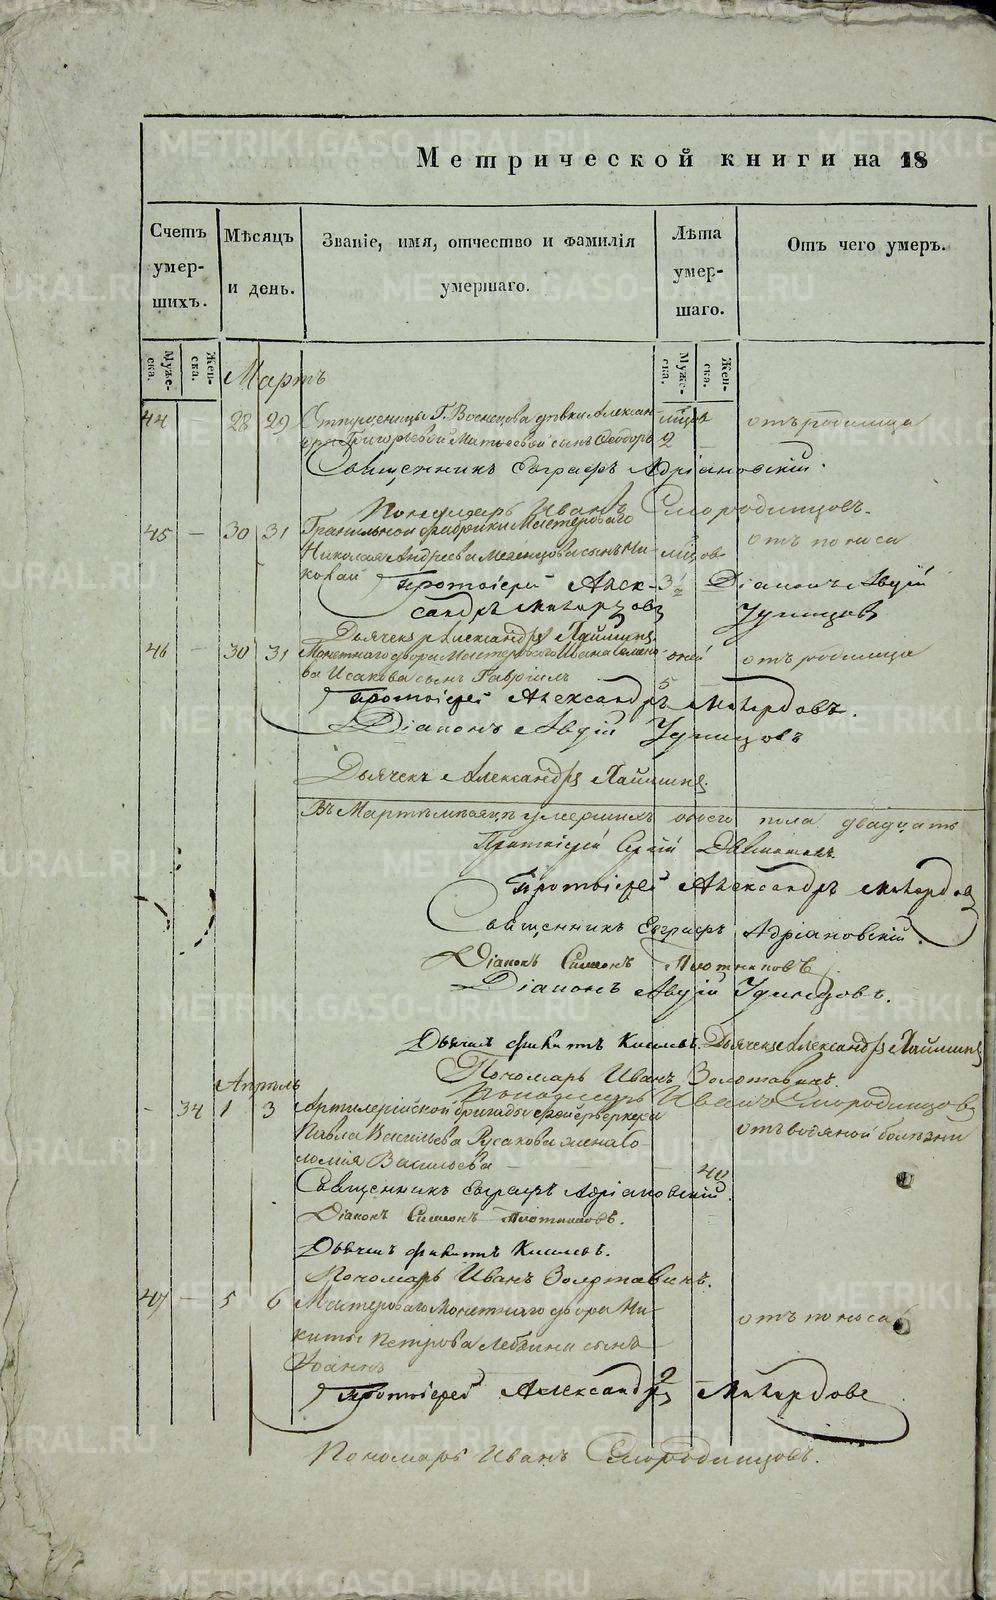 Метрической книги на 18
Счетъ умер-шихъ.
Мѣсяцъ и день.
Званіе, имя, отчество и фамилія умершаго.
Лѣта умер-шаго.
Отъ чего умеръ.
Муже-ска.
Жен-ска.
Муже-ска.
Жен-ска.
Мартъ
44 — 28 29 Г. дѣвки Алексан
Григорьевой сынъ Ѳеодоръ 2 — отъ родимца
Священникъ Евграфъ Адріановскій.
Пономарь Иванъ Смородинцовъ.
45 — 30 31 Гранильной фабрики Мастероваго
Николая Андреева сынъ Ни-
колай 3½ отъ поноса
Протоіерей Алек-
сандръ Діаконъ Авдій
Удинцовъ
Дьячекъ Александръ
46 — 30 31 Монетнаго двора Мастероваго Ивана Семено-
ва Исакова сынъ Гавріилъ 5 отъ родимца
Протоіерей Александръ
Діаконъ Авдій Удинцовъ
Дьячекъ Александръ
Въ Мартѣ мѣсяцѣ умершихъ обоего пола двадцать
Протоіерей
Протоіерей Александръ
Священникъ Евграфъ Адріановскій.
Діаконъ Симеонъ Плотниковъ
Діаконъ Авдій Удинцовъ.
Дьячекъ Дьячекъ Александръ
Пономарь Иванъ Золотавинъ.
Пономарь Иванъ Смородинцовъ
Апрѣль
— 34 1 3 Артилерійской бригады фейерверкера
Павла Васильева Русакова жена Со-
ломія Васильева 40 отъ водяной болѣзни
Священникъ Евграфъ Адріановскій.
Діаконъ Симеонъ Плотниковъ.
Дьячекъ
Пономарь Иванъ Золотавинъ.
47 — 5 6 Мастероваго Монетнаго двора Ни-
киты Петрова сынъ
Іоаннъ 2 отъ поноса
Протоіерей Александръ
Пономарь Иванъ Смородинцовъ.
METRIKI.GASO-URAL.RU